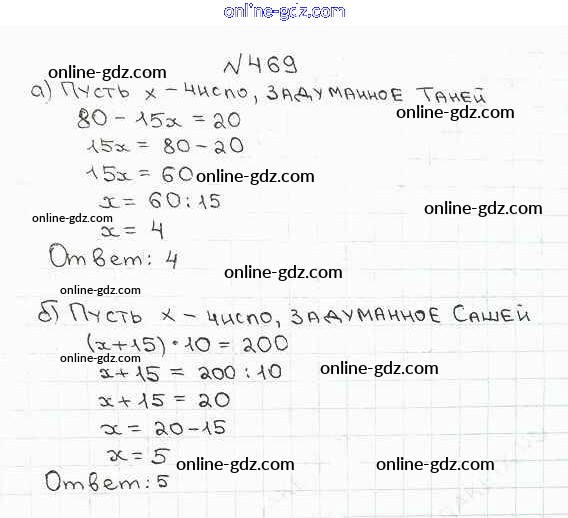 online-gdz.com
№469
online-gdz.com
а) Пусть x – число, задуманное Таней
80 – 15x = 20
online-gdz.com
15x = 80 – 20
15x = 60
online-gdz.com
x = 60 : 15
online-gdz.com
online-gdz.com
x = 4
Ответ: 4
online-gdz.com
online-gdz.com
б) Пусть x – число, задуманное Сашей
(x+15) · 10 = 200
online-gdz.com
x+15 = 200 : 10
online-gdz.com
x+15 = 20
x = 20 – 15
x = 5
online-gdz.com
online-gdz.com
Ответ: 5